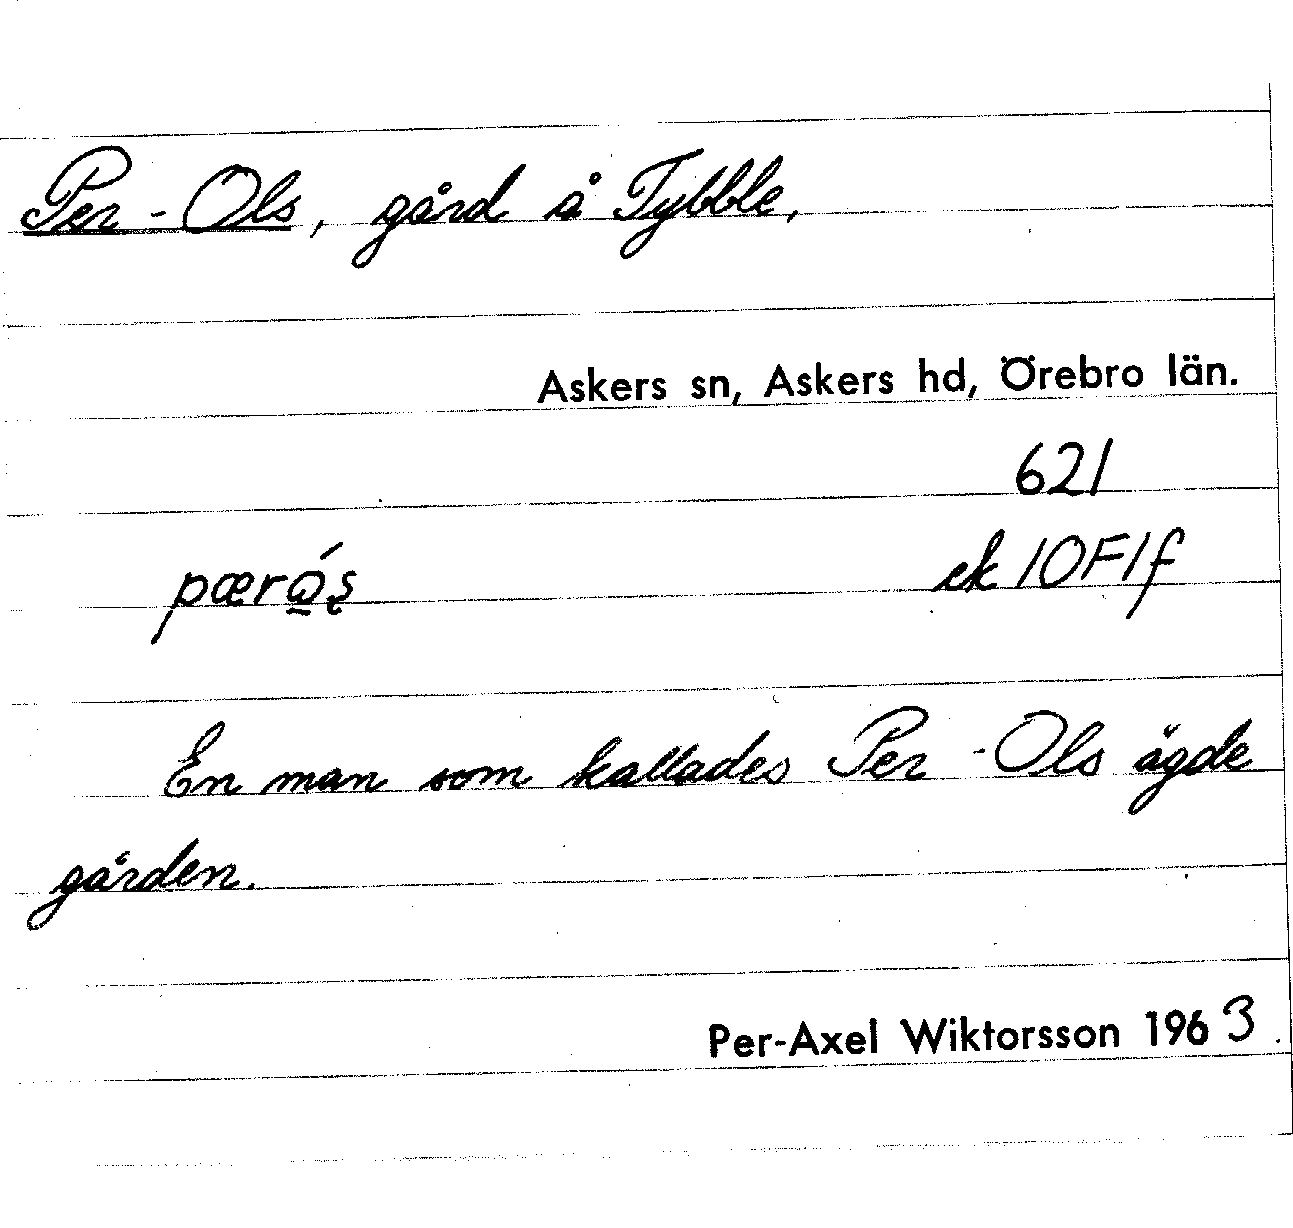 Per-Ols, gård å Tybble,
Askers sn, Askers hd, Örebro län.
621
pærǫ̲́ş
ek 10F1f
En man som kallades Per-Ols ägde
gården.
Per-Axel Wiktorsson 1963.